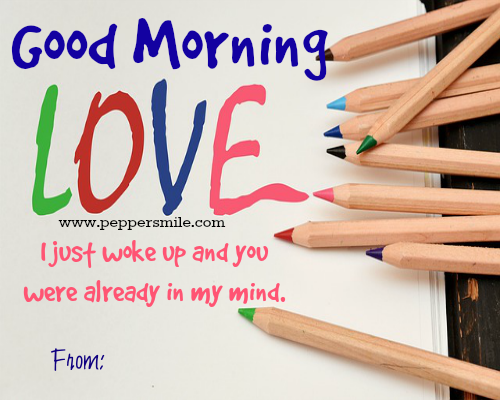 Good Morning
LOVE
www.peppersmile.com
I just woke up and you
were already in my mind.
From: